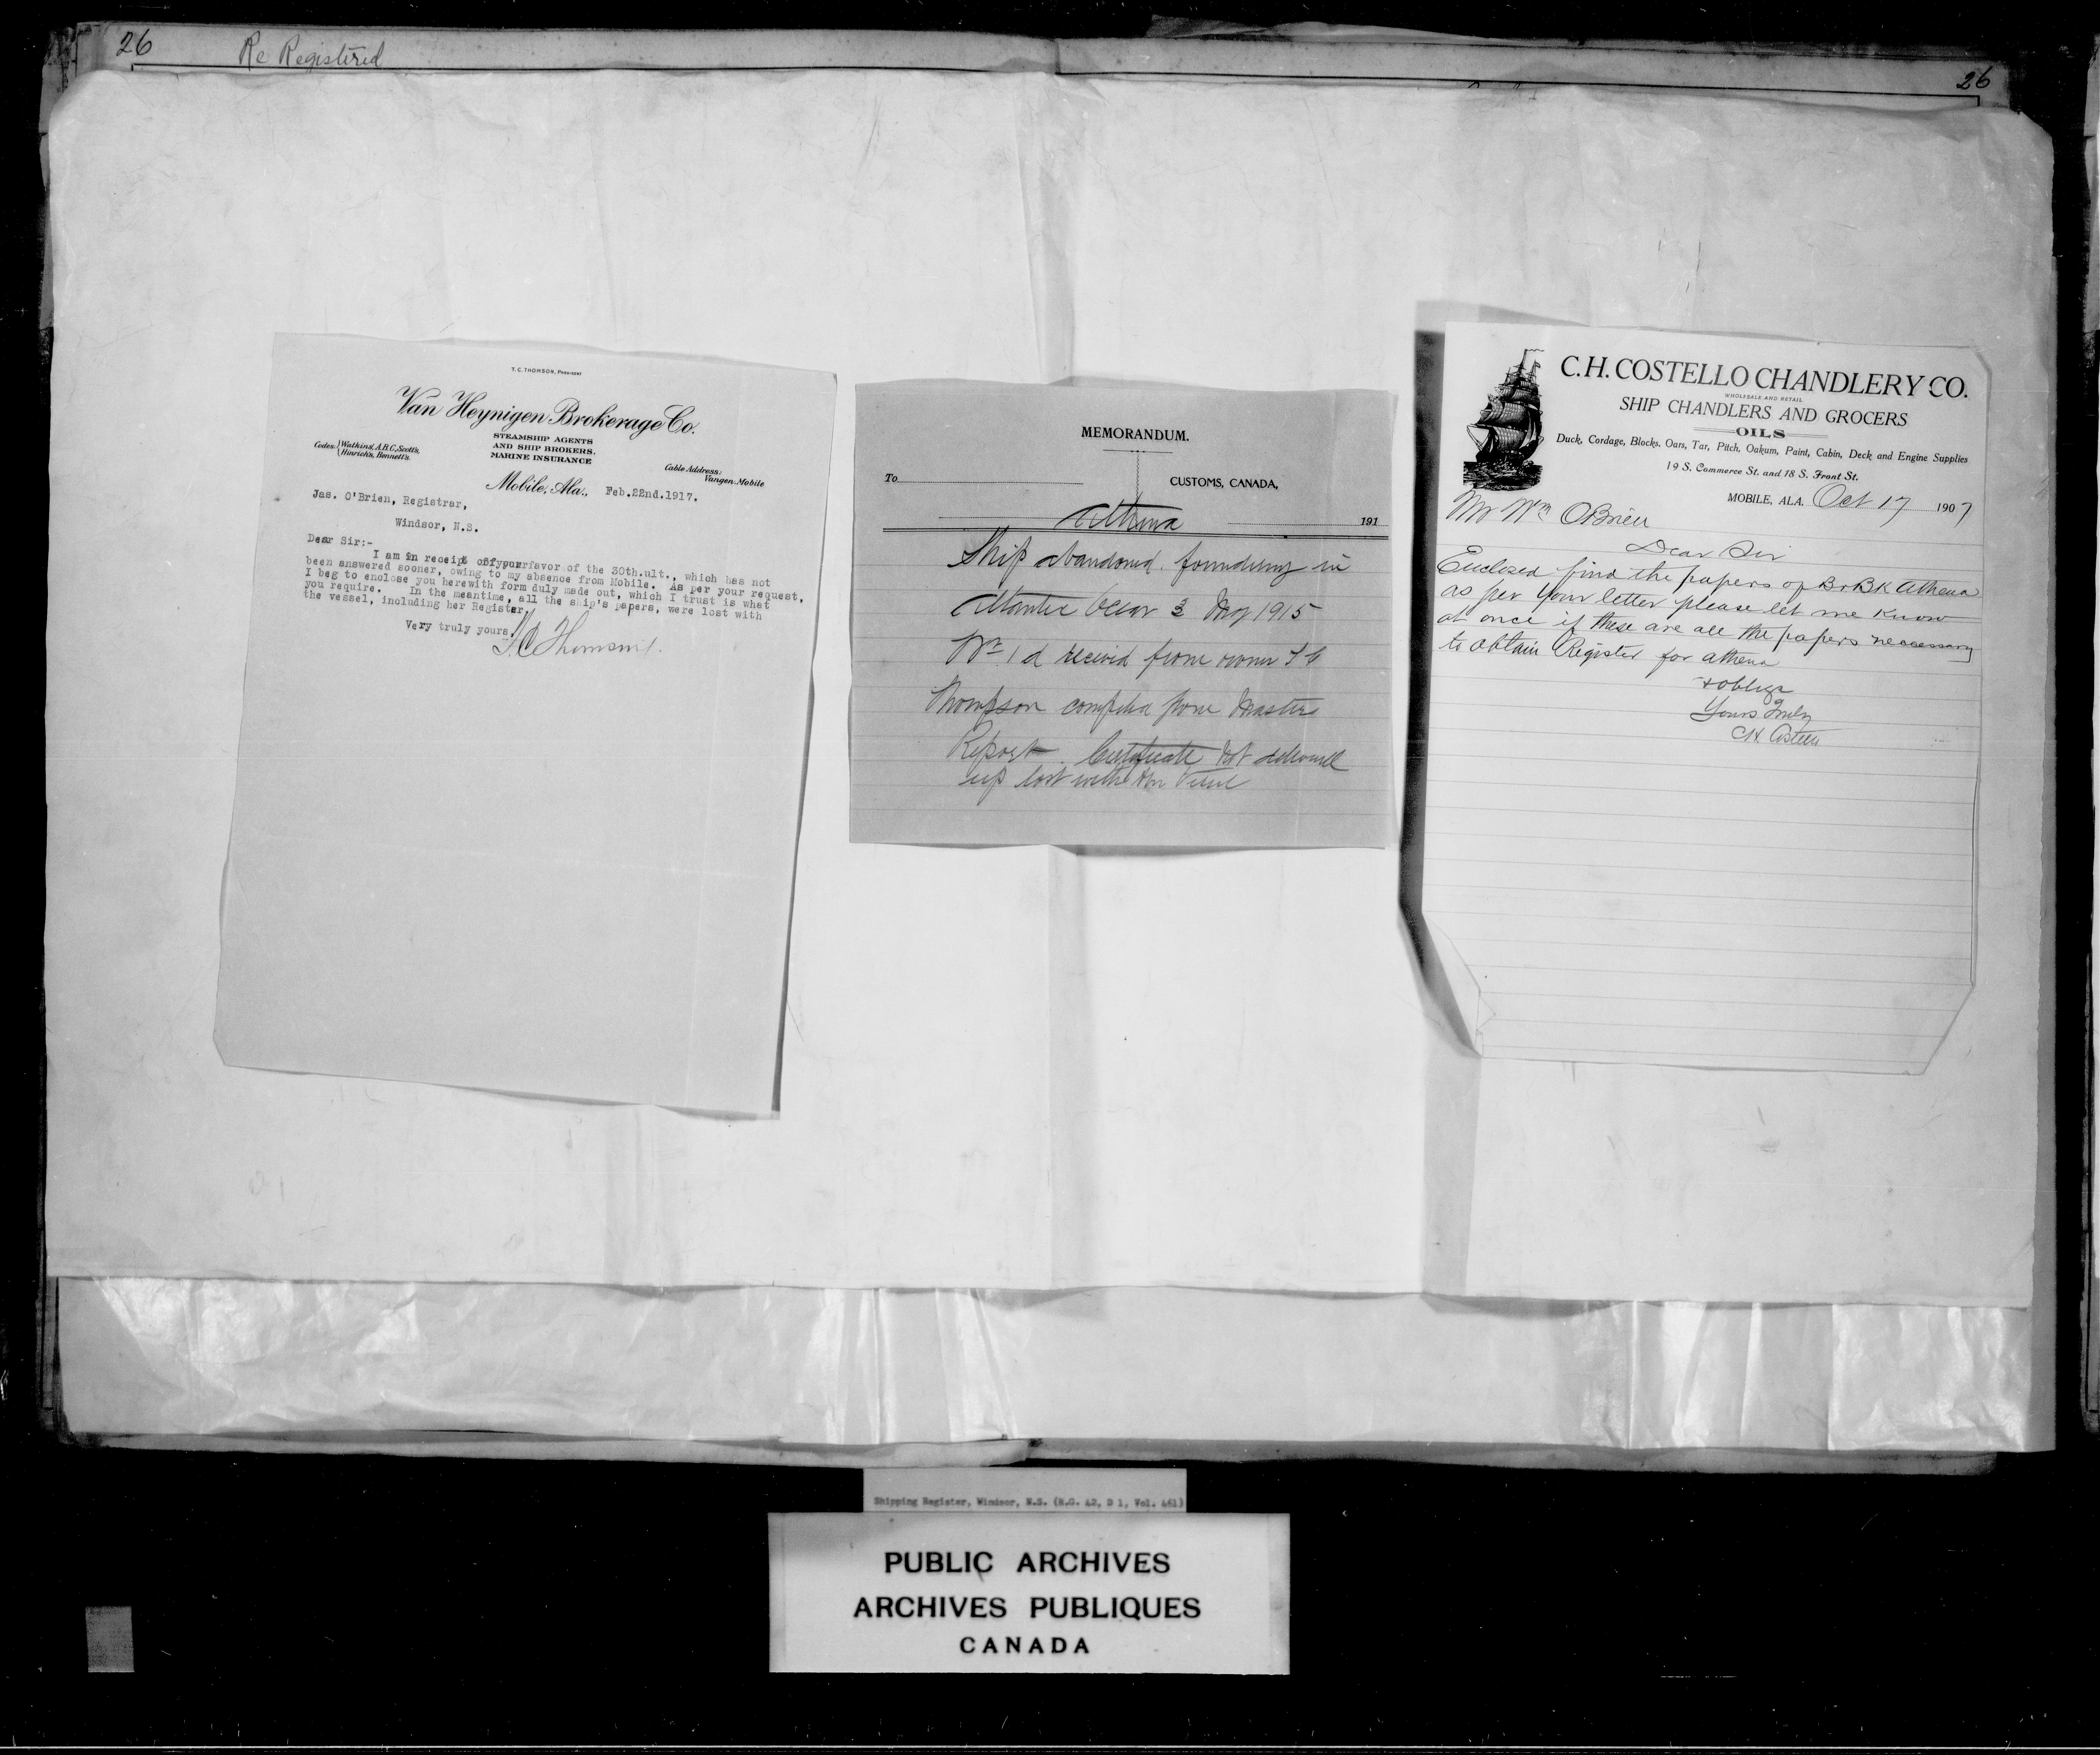 26
Re Registered
26
T. C. THOMSON, President
Van Heynigen Brokerage Co.
STEAMSHIP AGENTS
AND SHIP BROKERS.
MARINE INSURANCE
Codes: Watkins', A.B.C., Scott's,
Hinrich's, Bennett's.
Cable Address:
Vangen-Mobile
Mobile, Ala., Feb.22nd.1917.
Jas. O'Brien, Registrar,
Windsor, N.S.
Dear Sir:-
I am in receipt of your favor of the 30th.ult., which has not
been answered sooner, owing to my absence from Mobile. As per your request,
I beg to enclose you herewith form duly made out, which I trust is what
you require. In the meantime, all the ship's papers, were lost with
the vessel, including her Register.
Very truly yours,
T.C. Thomson
MEMORANDUM.
To
CUSTOMS, CANADA,
Athena
191
Ship abandoned foundering in
Atlantic Ocean 3 1915
received from owner T C
Thompson compiled from Masters
Report. Certificate not delivered
up lost with the Vessel
C.H. COSTELLO CHANDLERY CO.
WHOLESALE AND RETAIL
SHIP CHANDLERS AND GROCERS
OILS
Duck, Cordage, Blocks, Oars, Tar, Pitch, Oakum, Paint, Cabin, Deck and Engine Supplies
19 S. Commerce St. and 18 S. Front St.
MOBILE, ALA. Oct 17 1907
Mr Wm OBrien
Dear Sir
Enclosed find the papers of Br Bk Athena
as per your letter please let me know
at once if these are all the papers necessary
to obtain Register for Athena
& oblige
Yours Truly
CH Costello
Shipping Register, Windsor, N.S. (R.G. 42, D 1, Vol. 461)
PUBLIC ARCHIVES
ARCHIVES PUBLIQUES
CANADA